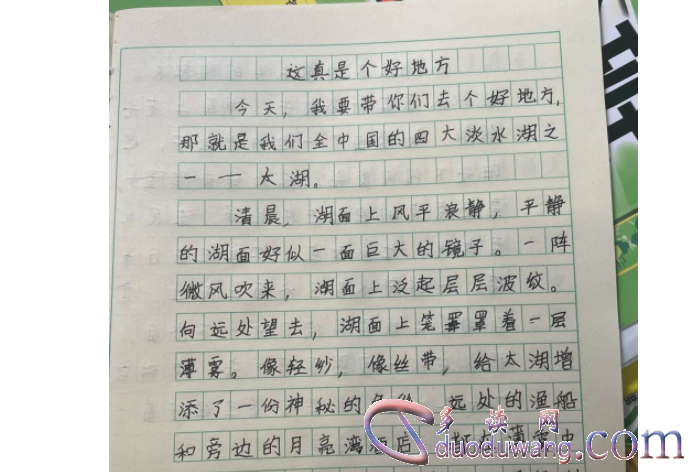 这真是个好地方
今天，我要带你们去个好地方，
那就是我们全中国的四大淡水湖之
一——太湖。
清晨，湖面上风平浪静，平静
的湖面好似一面巨大的镜子。一阵
微风吹来，湖面上泛起层层波纹。
向远处望去，湖面上笼罩罩着一层
薄雾。像轻纱，像丝带，给太湖增
添了一份神秘的色彩。远处的渔船
和旁边的月亮湾酒店
中
多读网
duoduwang.com